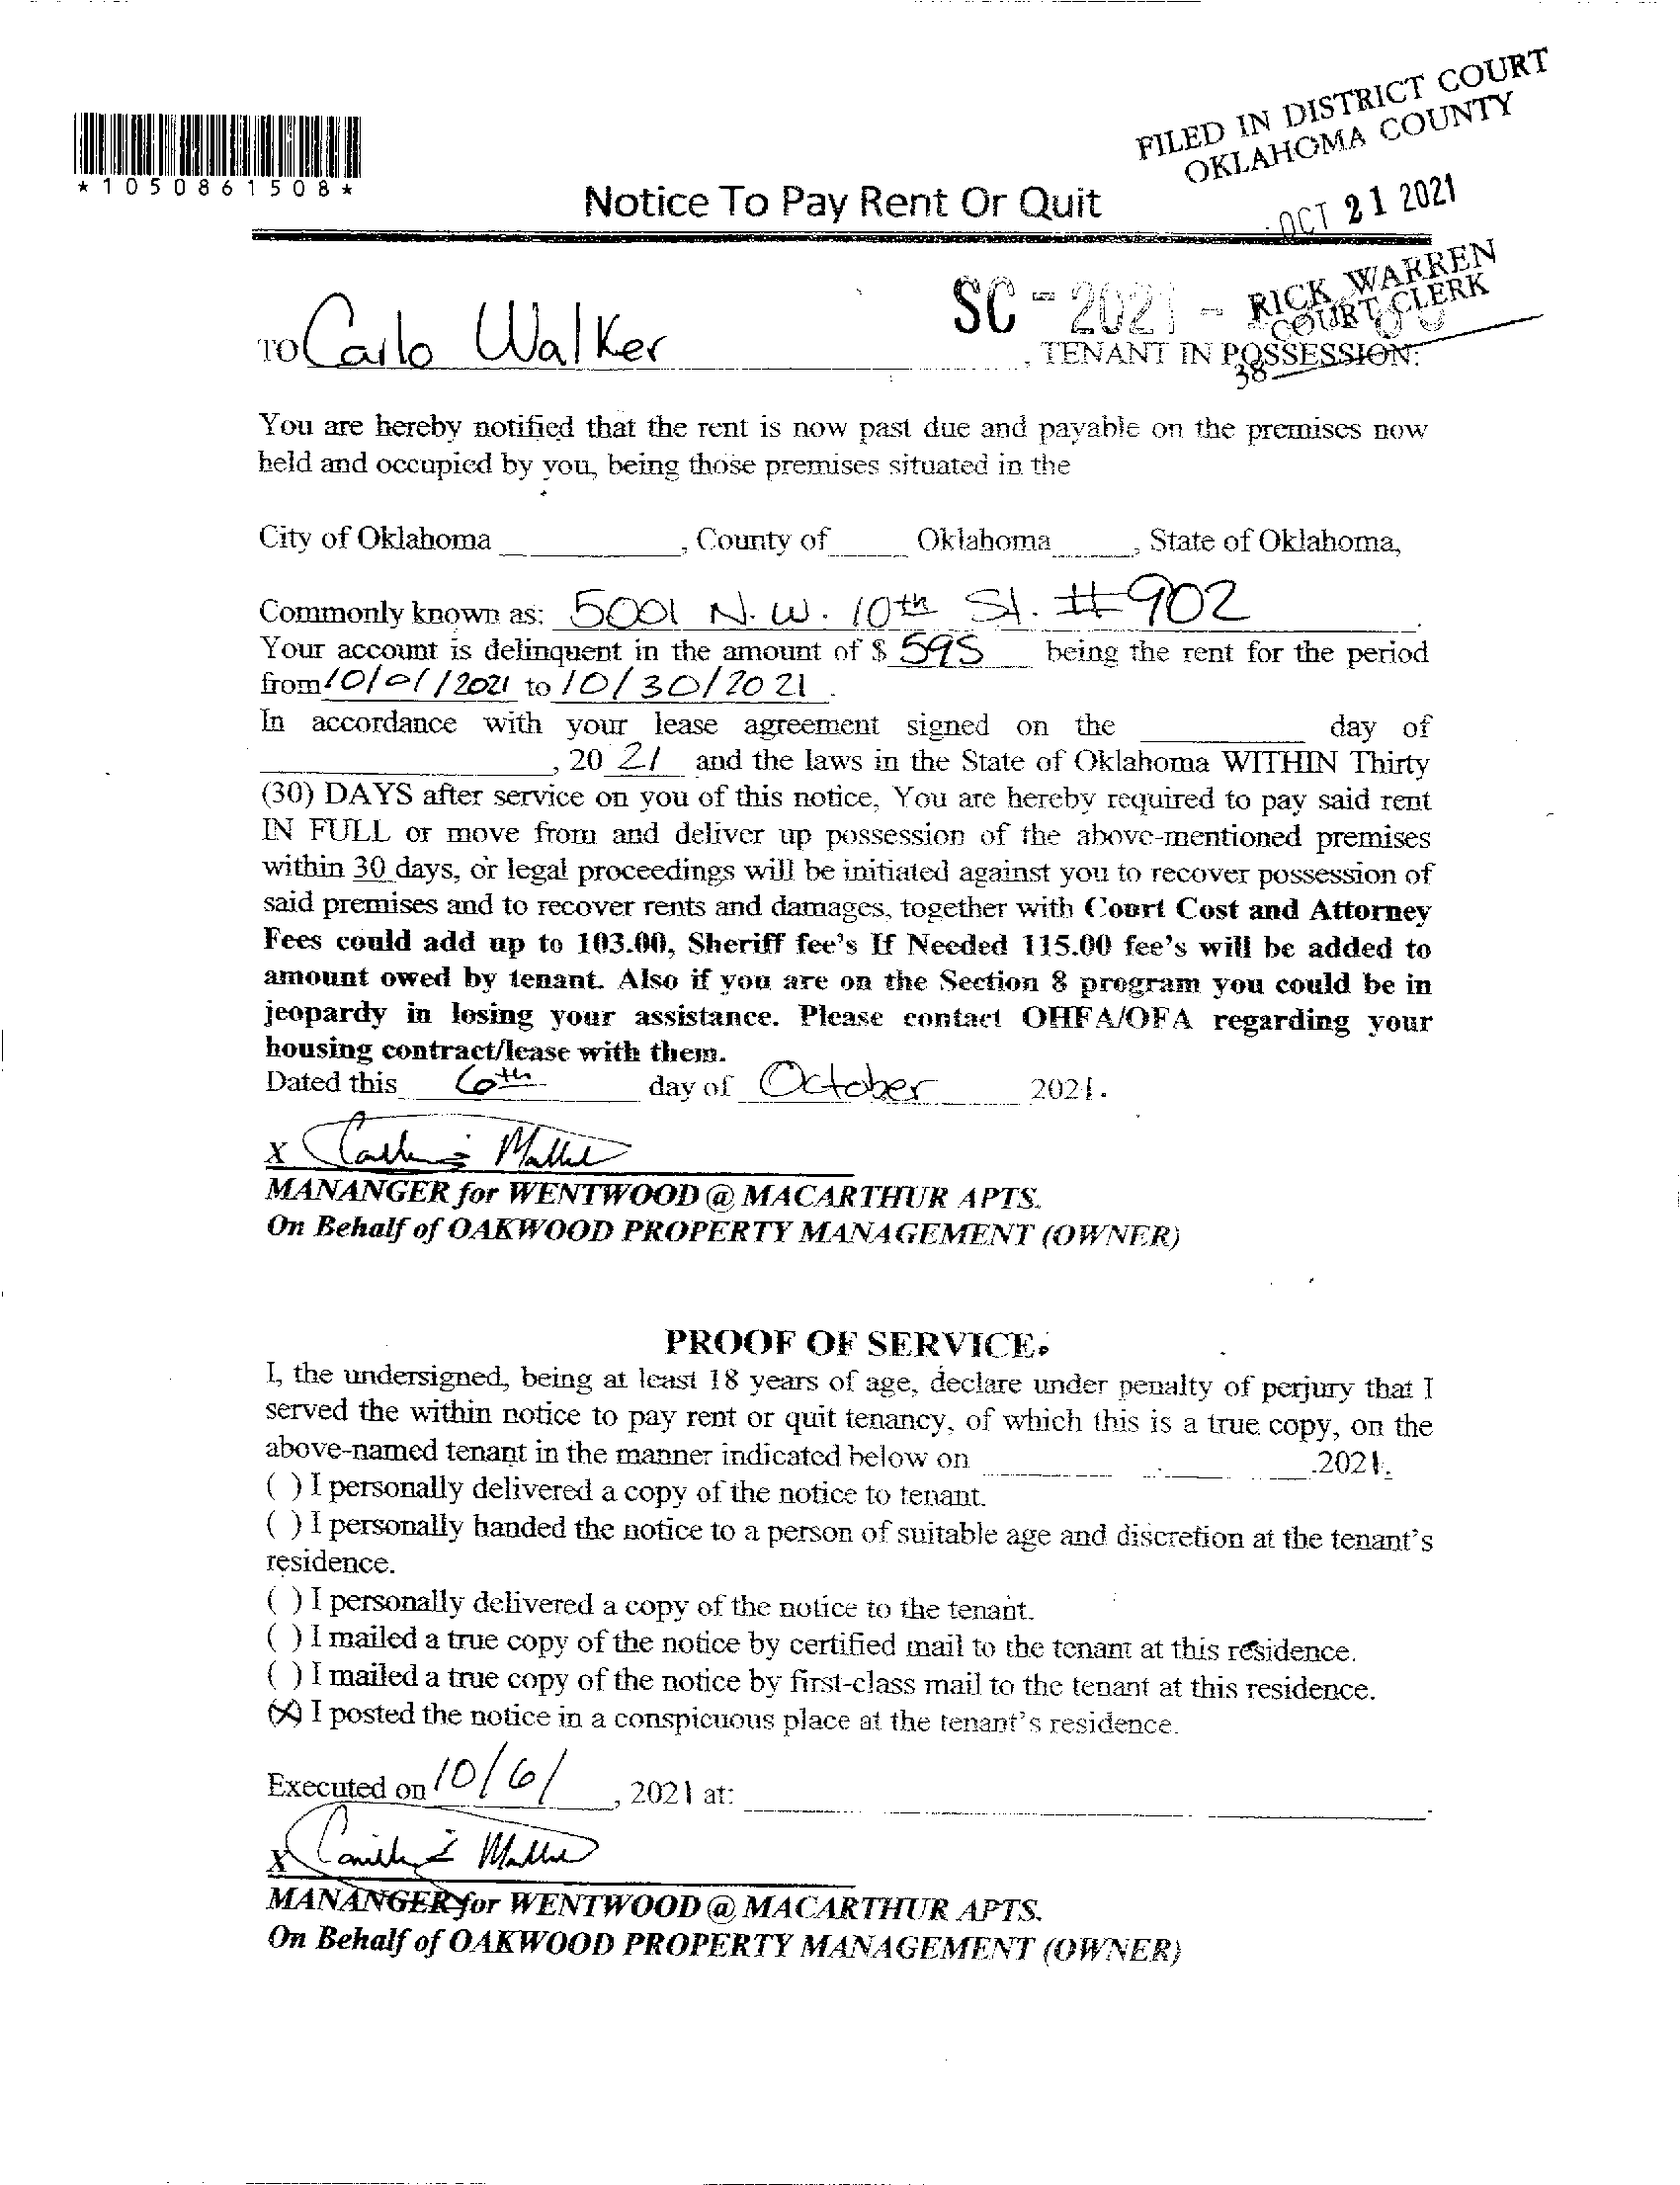 FILED IN DISTRICT COURT
OKLAHOMA COUNTY
*1050861508*
Notice To Pay Rent Or Quit
OCT 21 2021
RICK WARREN
COURT CLERK
SC - 2021 -
38
TO Carlo Walker , TENANT IN POSSESSION:
You are hereby notified that the rent is now past due and payable on the premises now
held and occupied by you, being those premises situated in the
City of Oklahoma , County of Oklahoma , State of Oklahoma,
Commonly known as: 5001 N.W. 10th St. #902 .
Your account is delinquent in the amount of $ 595 being the rent for the period
from 10/01/2021 to 10/30/2021 .
In accordance with your lease agreement signed on the ________ day of
________, 20 21 and the laws in the State of Oklahoma WITHIN Thirty
(30) DAYS after service on you of this notice, You are hereby required to pay said rent
IN FULL or move from and deliver up possession of the above-mentioned premises
within 30 days, or legal proceedings will be initiated against you to recover possession of
said premises and to recover rents and damages, together with Court Cost and Attorney
Fees could add up to 103.00, Sheriff fee's If Needed 115.00 fee's will be added to
amount owed by tenant. Also if you are on the Section 8 program you could be in
jeopardy in losing your assistance. Please contact OHFA/OFA regarding your
housing contract/lease with them.
Dated this 6th day of October 2021.
X
MANANGER for WENTWOOD @ MACARTHUR APTS.
On Behalf of OAKWOOD PROPERTY MANAGEMENT (OWNER)
PROOF OF SERVICE.
I, the undersigned, being at least 18 years of age, declare under penalty of perjury that I
served the within notice to pay rent or quit tenancy, of which this is a true copy, on the
above-named tenant in the manner indicated below on ________ .2021.
( ) I personally delivered a copy of the notice to tenant.
( ) I personally handed the notice to a person of suitable age and discretion at the tenant's
residence.
( ) I personally delivered a copy of the notice to the tenant.
( ) I mailed a true copy of the notice by certified mail to the tenant at this residence.
( ) I mailed a true copy of the notice by first-class mail to the tenant at this residence.
(X) I posted the notice in a conspicuous place at the tenant's residence.
Executed on 10/6/ , 2021 at: ________.
X
MANANGER for WENTWOOD @ MACARTHUR APTS.
On Behalf of OAKWOOD PROPERTY MANAGEMENT (OWNER)